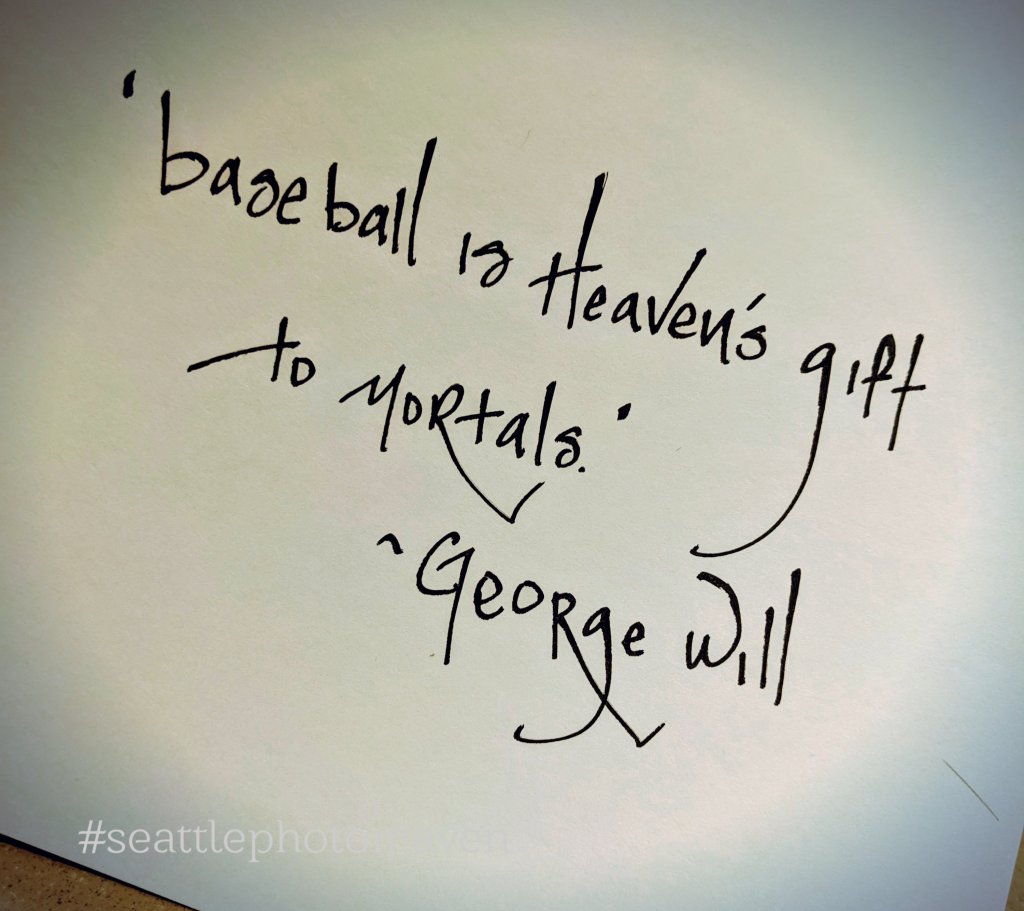 'baseball is Heaven's gift
to mortals.'
~George Will